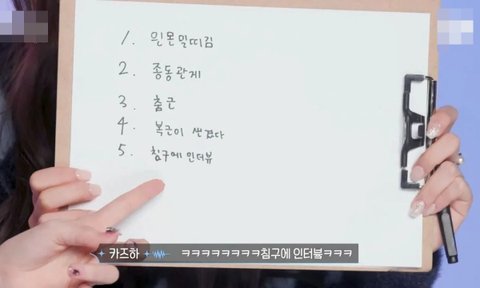 1. 읜몬밀띠김
2. 종동관게
3. 춤근
4. 복근이 쌘겼다
5. 침구에 인더뷰
카즈하 ㅋㅋㅋㅋㅋㅋㅋㅋ침구에 인터뷰ㅋㅋㅋ